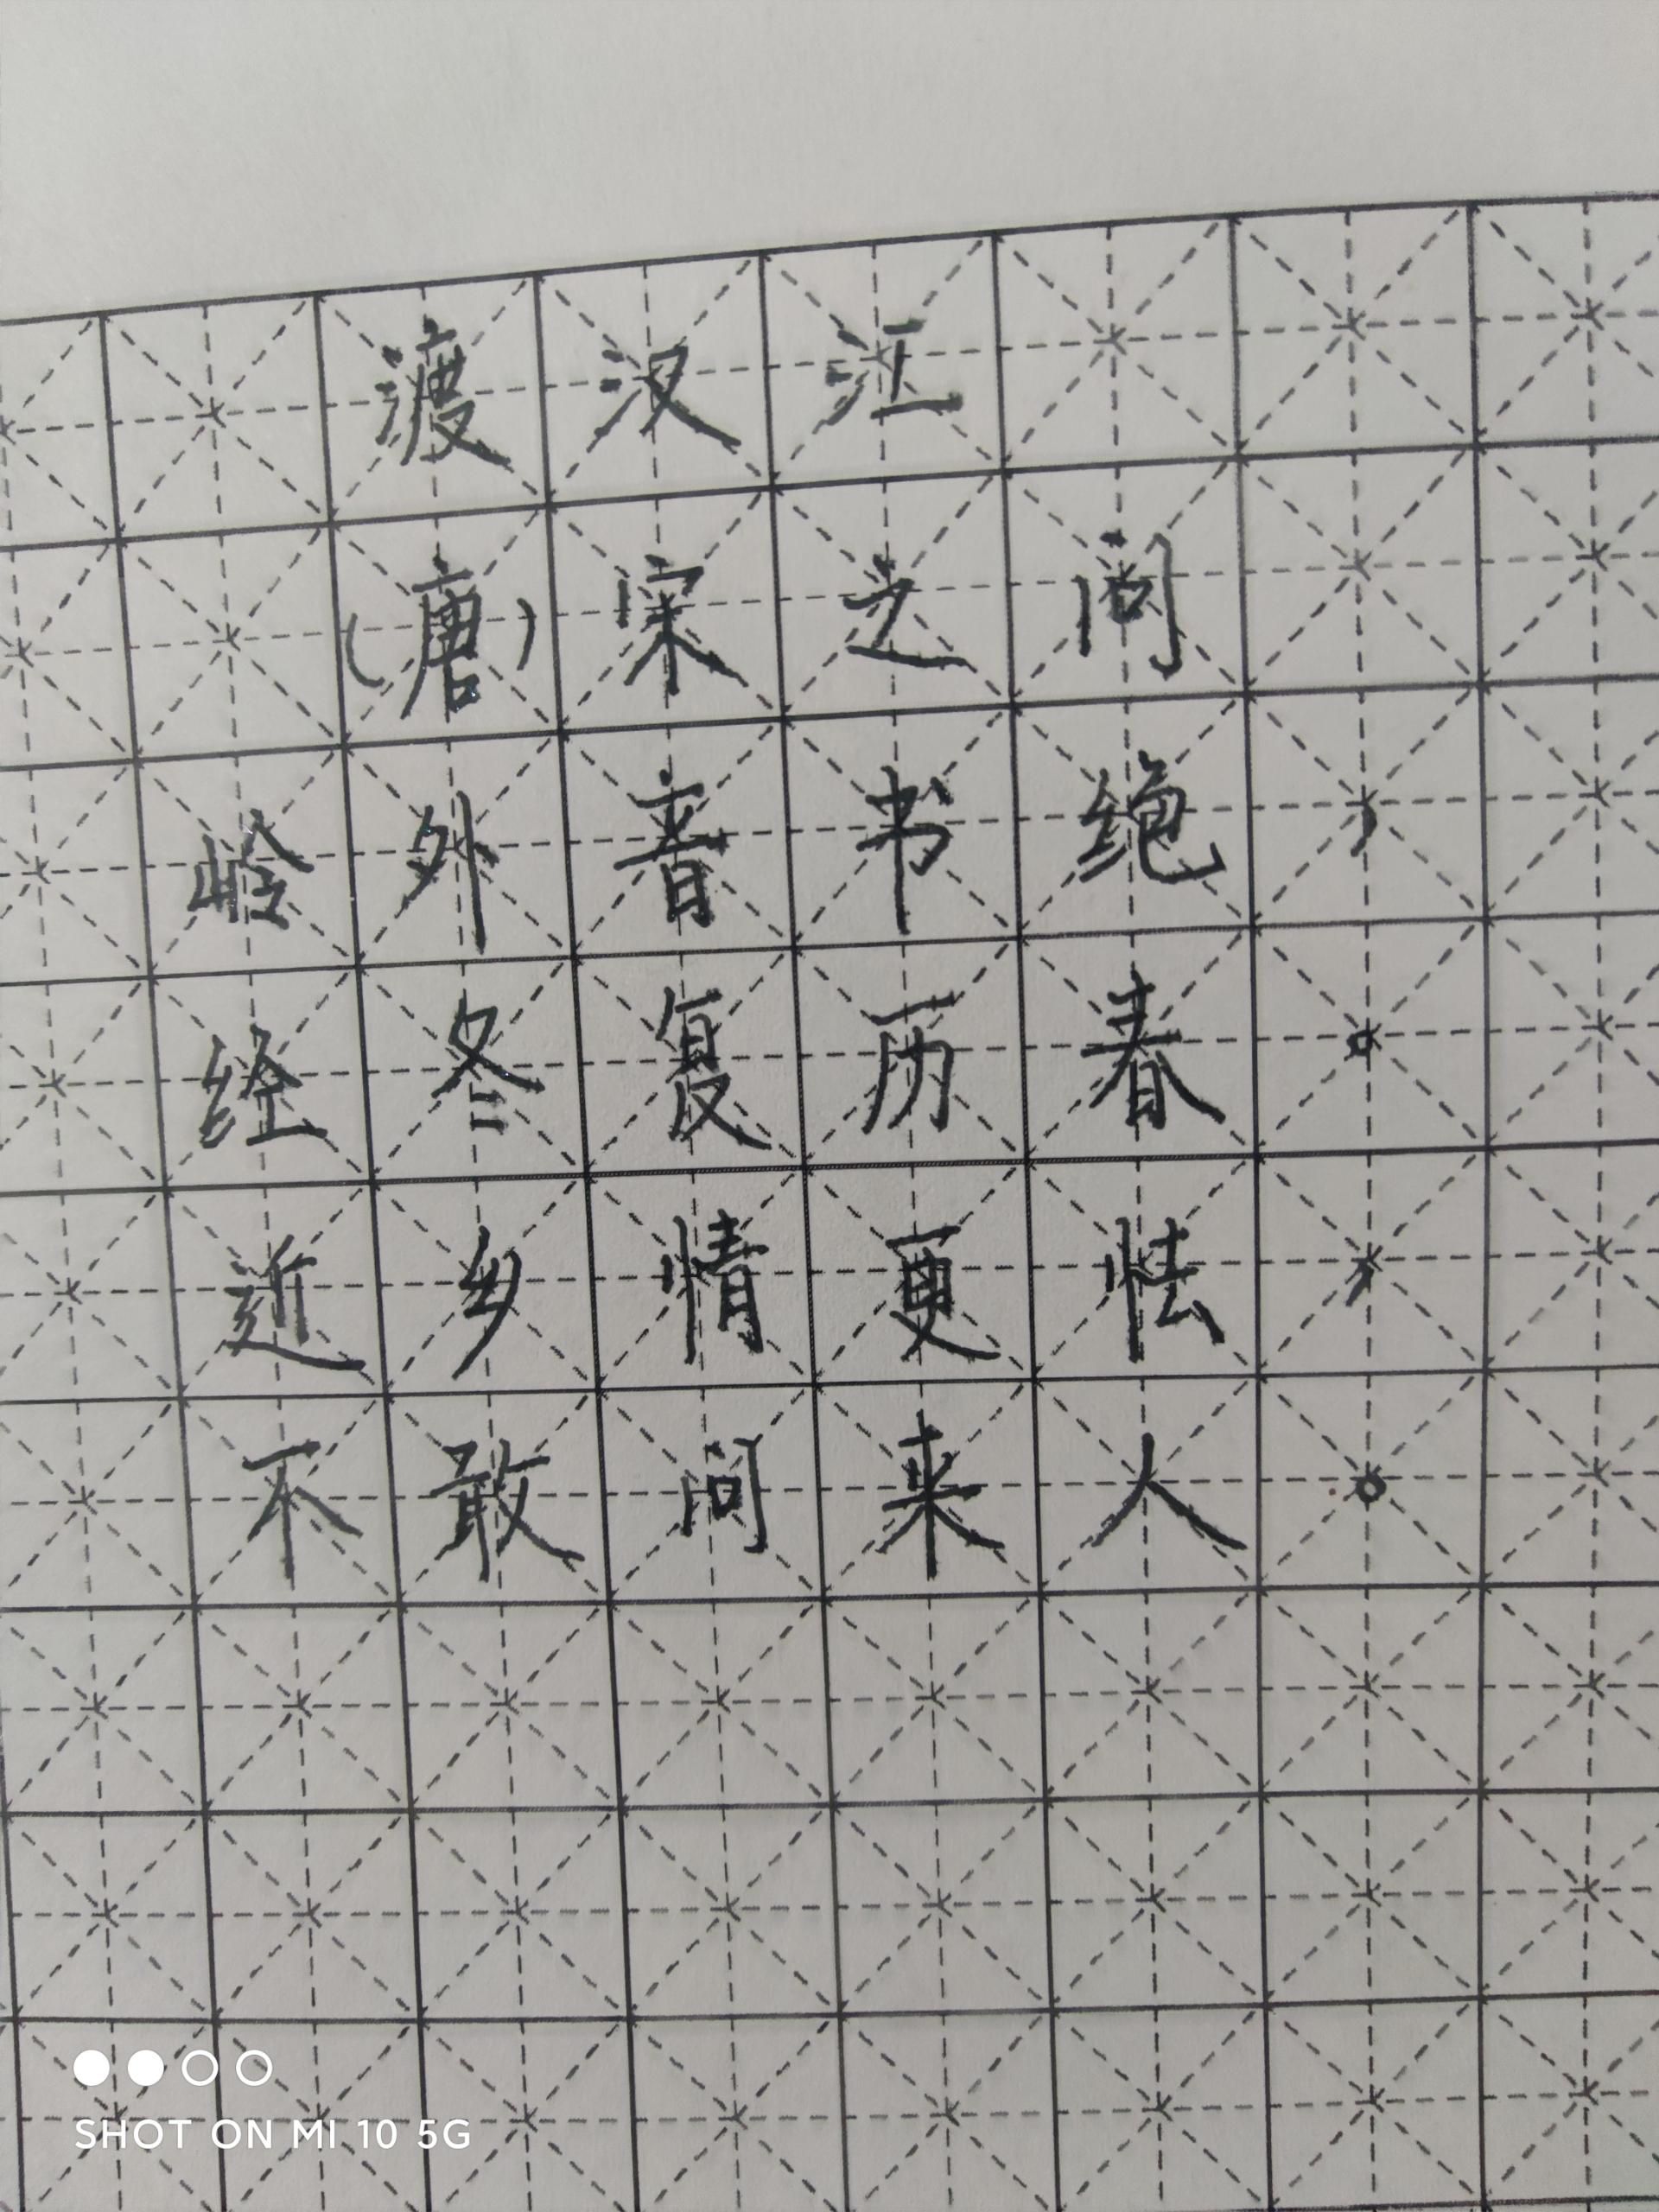 渡汉江
（唐）宋之问
岭外音书绝，
经冬复历春。
近乡情更怯，
不敢问来人。
SHOT ON MI 10 5G